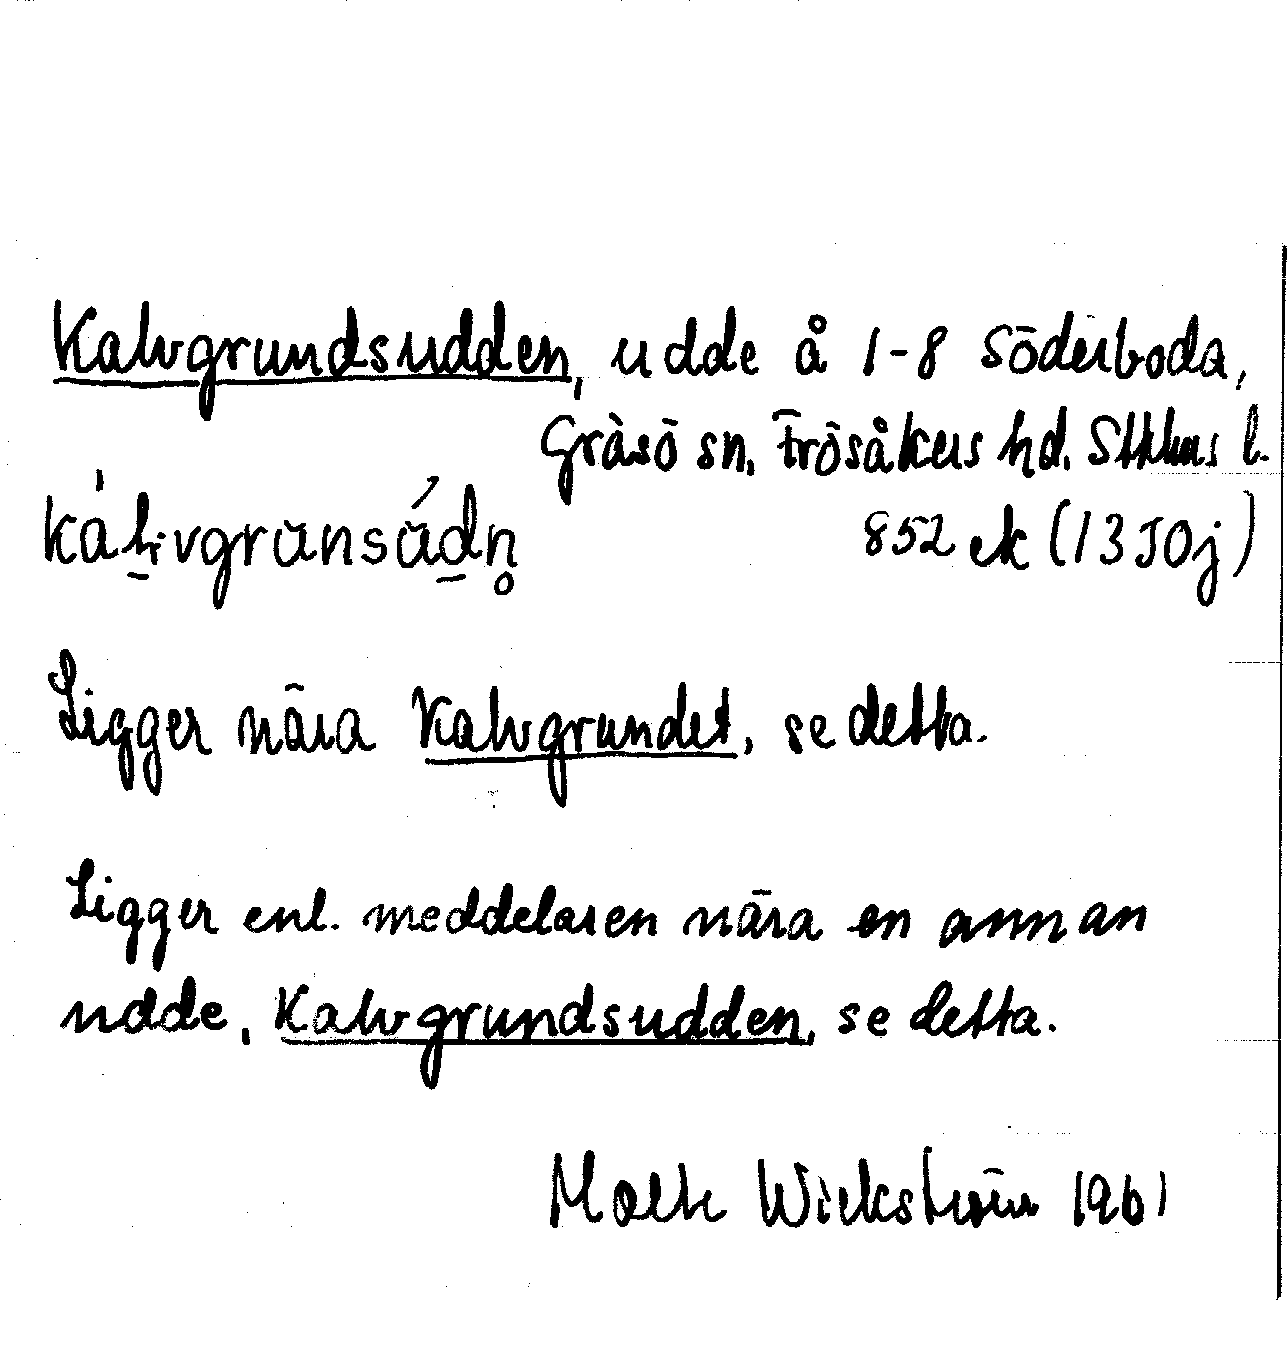 Kalvgrundsudden, udde å 1-8 Söderboda,
Gräsö sn. Frösåkers hd. Sthlms l.
852 ek (13 I0j)
Ligger nära Kalvgrundet, se detta.
Ligger enl. meddelaren nära en annan
udde, Kalvgrundsudden, se detta.
Wickström 1961